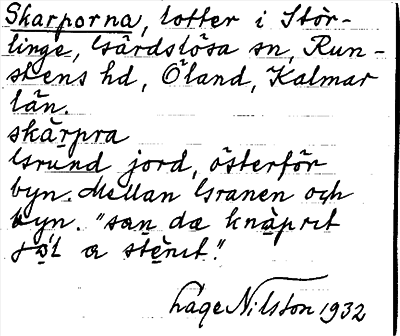 Skarporna, lotter i Stör-
linge, Gärdslösa sn, Run-
stens hd, Öland, Kalmar
län.
skarpra
Grund jord, österför
byn. Mellan Granen och
byn. "san dæ knaprt
stenet."
Lage Nilsson 1932